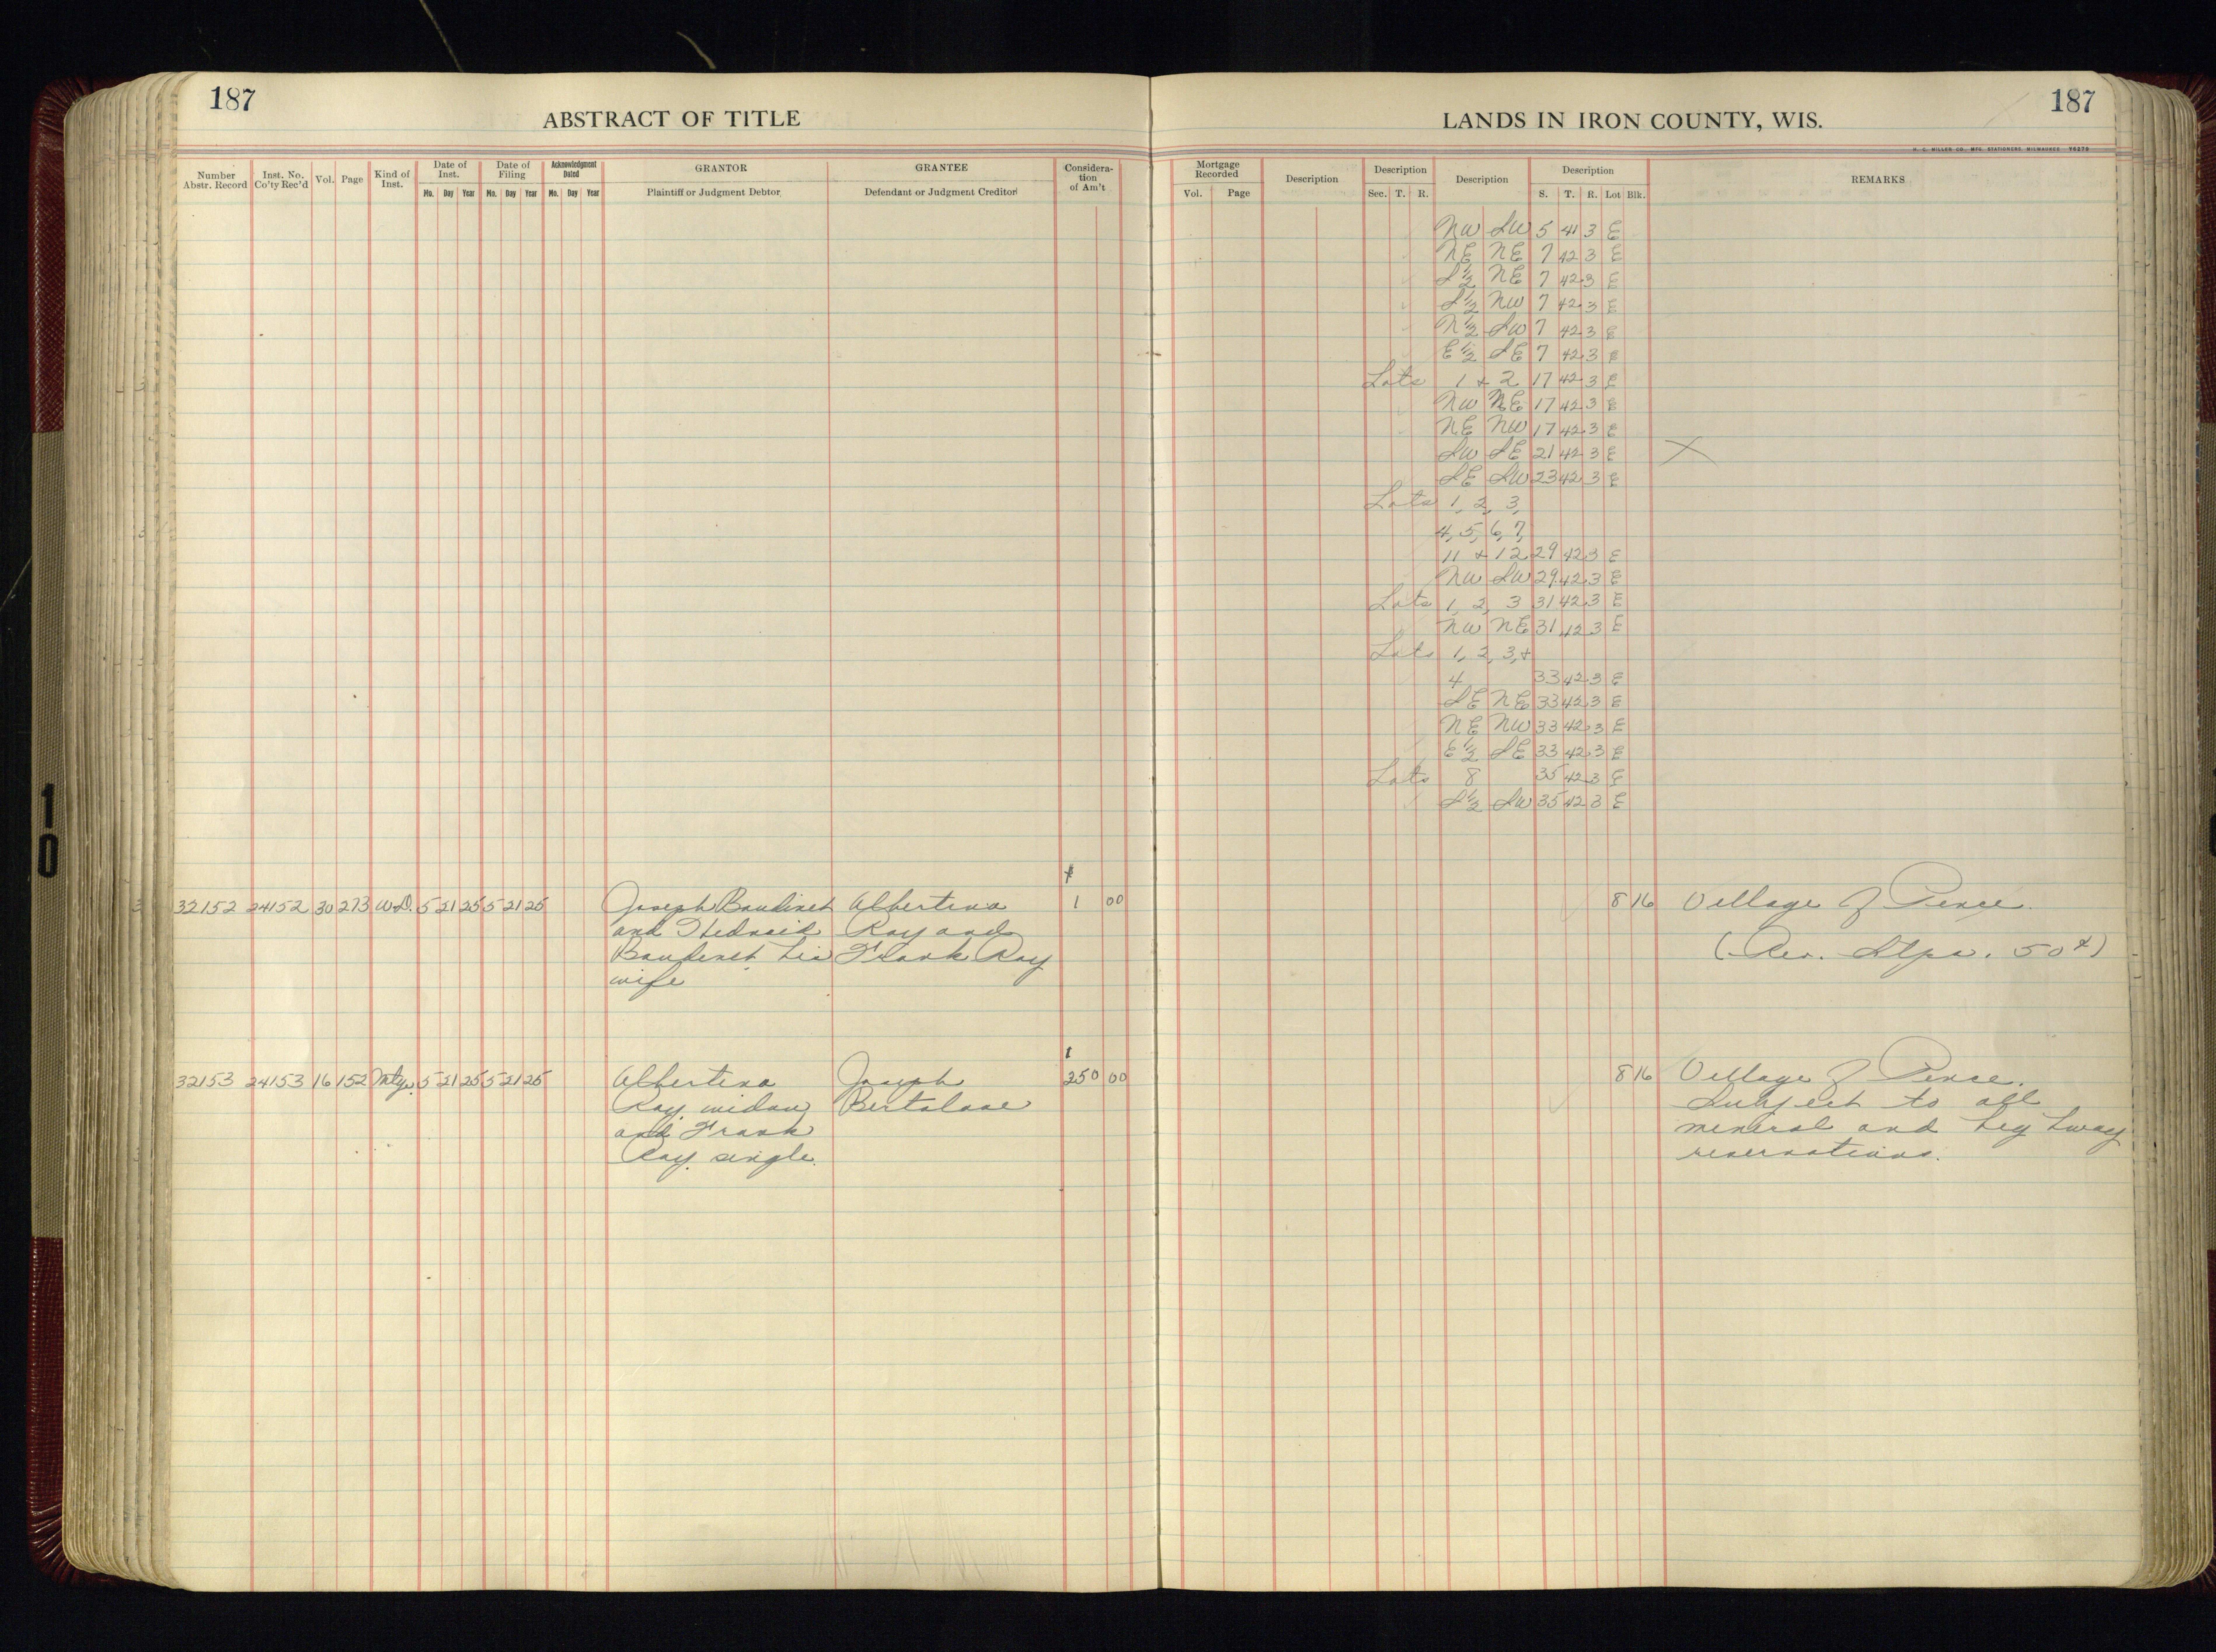 187
ABSTRACT OF TITLE
Number Abstr. Record
Inst. No. Co'ty Rec'd
Vol.
Page
Kind of Inst.
Date of Inst.
Mo. Day Year
Date of Filing
Mo. Day Year
Acknowledgment Dated
Mo. Day Year
GRANTOR
Plaintiff or Judgment Debtor
GRANTEE
Defendant or Judgment Creditor
Considera-tion of Am't
32152 24152 30 273 W.D. 5 21 25 5 21 25 Joseph Baudinet Albertina 1 00
and his Ray and
Baudinet his Frank Ray
wife
32153 24153 16 152 Mtge. 5 21 25 5 21 25 Albertina Joseph 250 00
Ray, widow, Bertolone
and Frank
Ray, single.
187
LANDS IN IRON COUNTY, WIS.
H. C. MILLER CO., MFG. STATIONERS, MILWAUKEE
Mortgage Recorded
Vol. Page
Description
Description
Sec. T. R.
Description
Description
S. T. R. Lot Blk.
REMARKS
NW SW 5 41 3 E
NE NE 7 42 3 E
S½ NE 7 42 3 E
S½ NW 7 42 3 E
N½ SW 7 42 3 E
E½ SE 7 42 3 E
Lots 1 + 2 17 42 3 E
NW NE 17 42 3 E
NE NW 17 42 3 E
SW SE 21 42 3 E X
SE SW 23 42 3 E
Lots 1, 2, 3,
4, 5, 6, 7,
11 + 12 29 42 3 E
NW SW 29 42 3 E
Lots 1, 2, 3 31 42 3 E
NW NE 31 42 3 E
Lots 1, 2, 3, +
4 33 42 3 E
SE NE 33 42 3 E
NE NW 33 42 3 E
E½ SE 33 42 3 E
Lots 8 35 42 3 E
S½ SW 35 42 3 E
8 16 Village of Pence.
(Rev. Stps. 50¢)
8 16 Village of Pence.
Subject to all
mineral and highway
reservations.